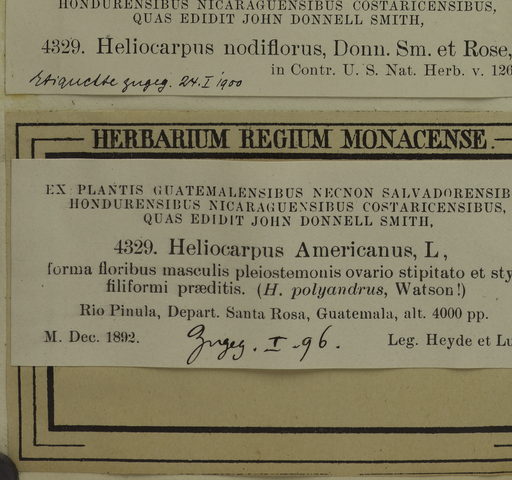 HONDURENSIBUS NICARAGUENSIBUS COSTARICENSIBUS,
QUAS EDIDIT JOHN DONNELL SMITH,
4329. Heliocarpus nodiflorus, Donn. Sm. et Rose,
in Contr. U. S. Nat. Herb. v. 126
Etiquette zugeg. 24. I 1900
HERBARIUM REGIUM MONACENSE.
EX PLANTIS GUATEMALENSIBUS NECNON SALVADORENSIB
HONDURENSIBUS NICARAGUENSIBUS COSTARICENSIBUS,
QUAS EDIDIT JOHN DONNELL SMITH,
4329. Heliocarpus Americanus, L,
forma floribus masculis pleiostemonis ovario stipitato et sty
filiformi præditis. (H. polyandrus, Watson!)
Rio Pinula, Depart. Santa Rosa, Guatemala, alt. 4000 pp.
M. Dec. 1892.
Zugeg. I -96.
Leg. Heyde et Lu